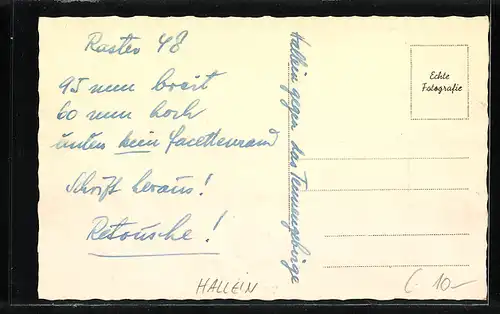 Raster 48
95 mm breit
60 mm hoch
unten kein Facettenrand
Schrift heraus!
Retousche!
HALLEIN
Hallein gegen das Tennengebirge
Echte
Fotografie
10-